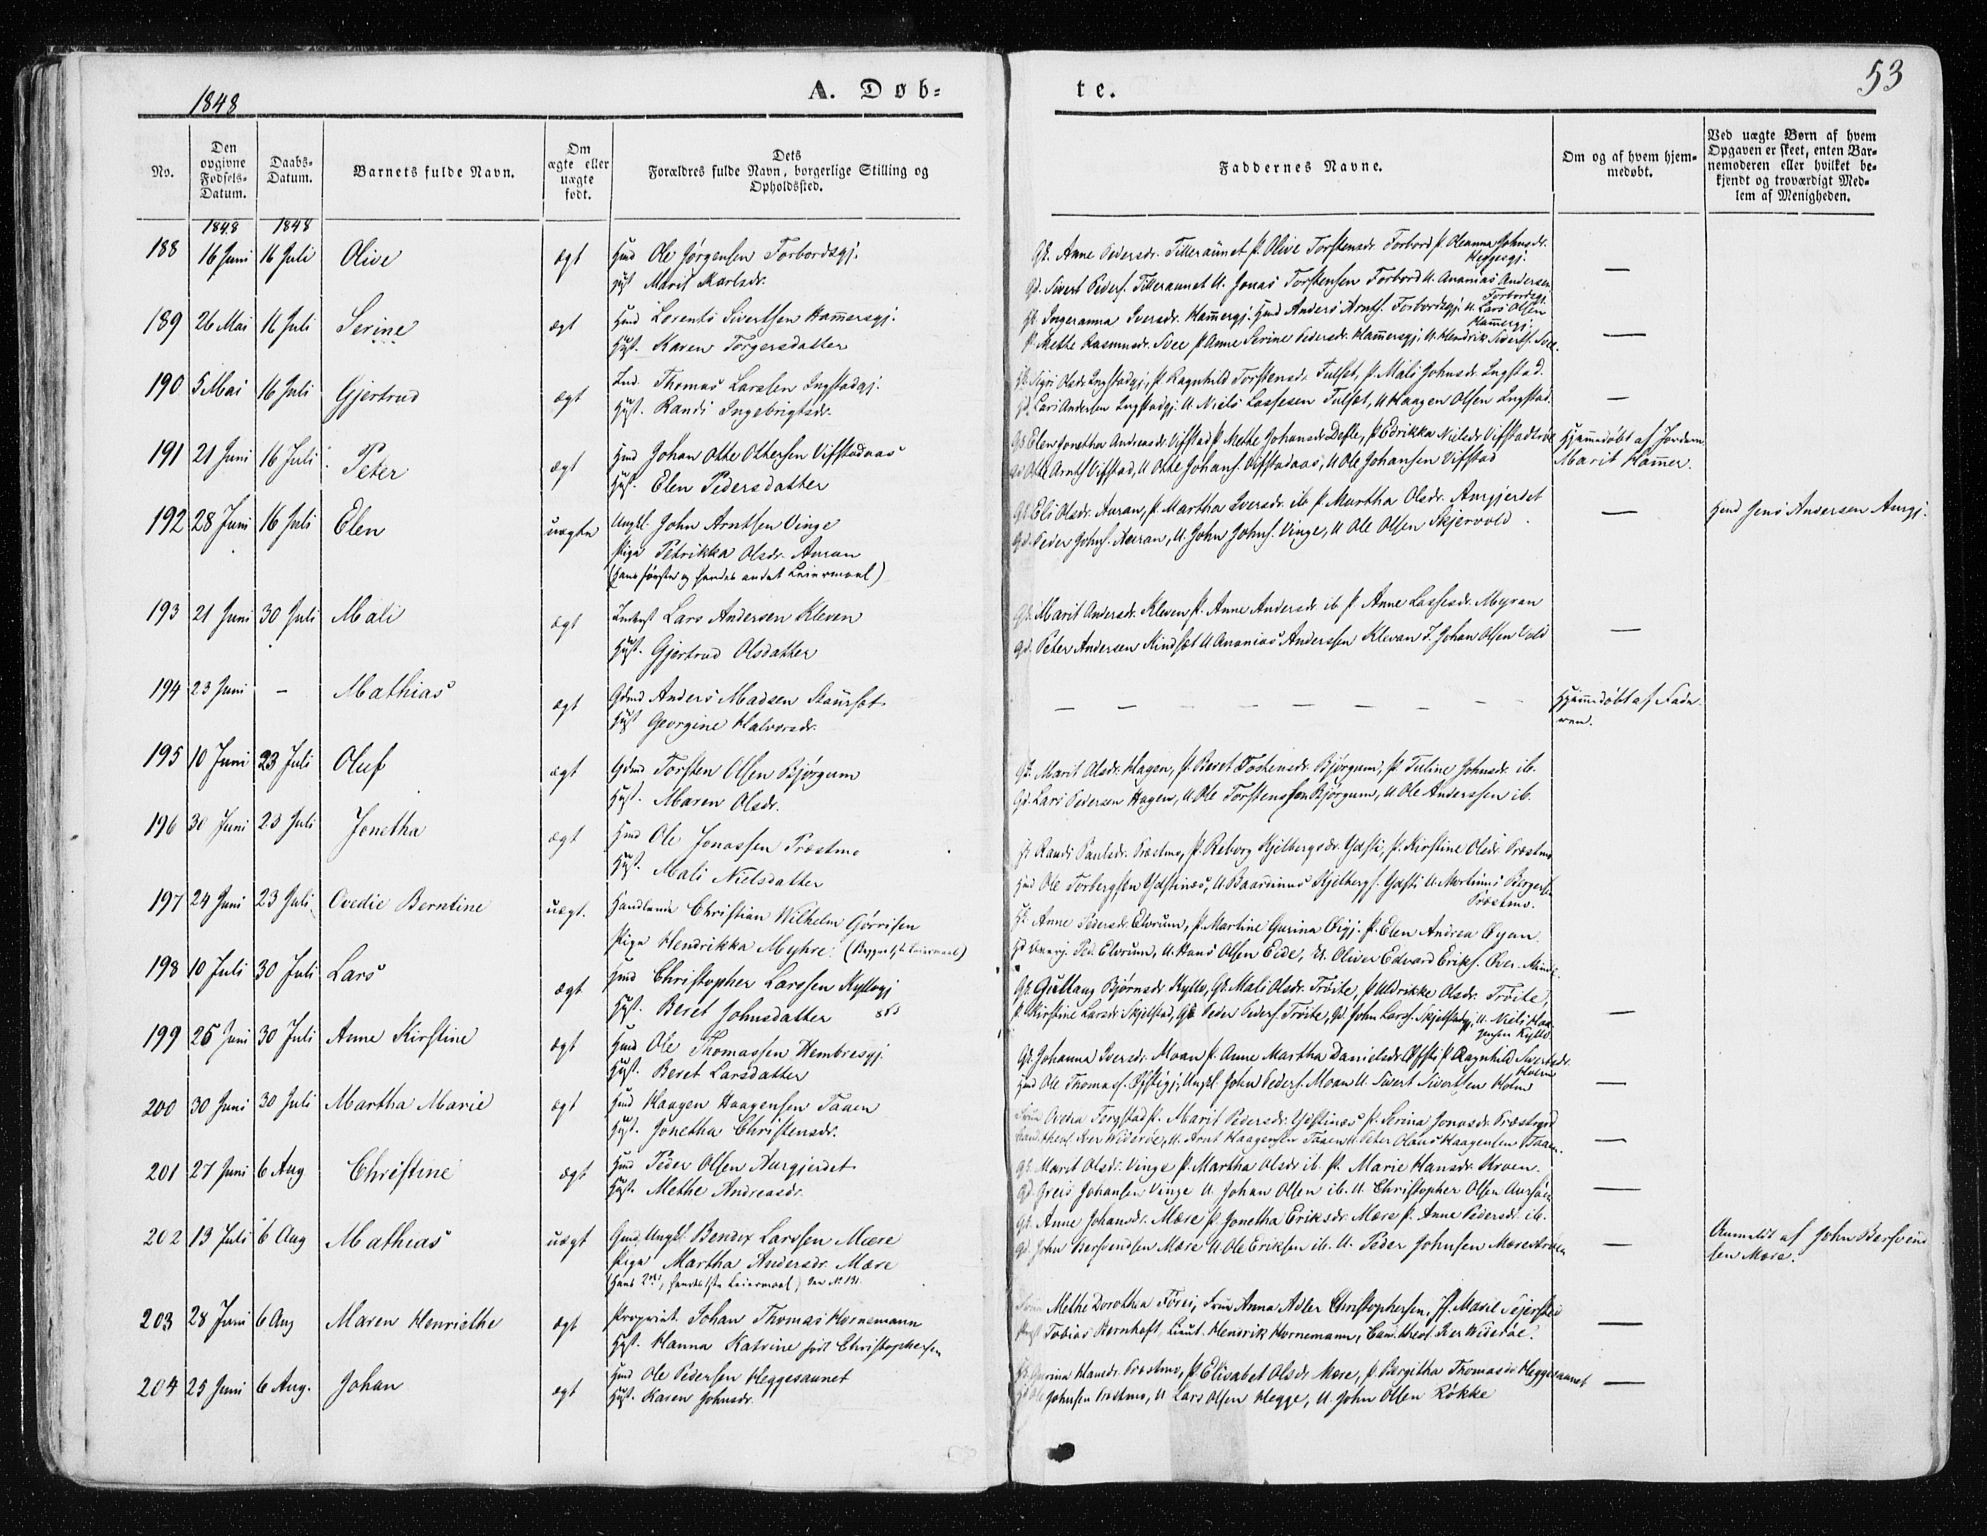 1848
A. Døb-
te.
53
No.
Den opgivne Fødsels-Datum.
Daabs-Datum.
Barnets fulde Navn.
Om ægte eller uægte født.
Dets Forældres fulde Navn, borgerlige Stilling og Opholdssted.
Faddernes Navne.
Om og af hvem hjem-
medøbt.
Ved uægte Børn af hvem
Opgaven er skeet, enten Bar-
nemoderen eller hvilket be-
kjendt og troværdigt Med-
lem af Menigheden.
1848 1848
188 16 Juni 16 Juli Olive ægt Hmd Ole Jørgensen Forbordsgj.
Hust Marit Karlsdr.
Gk. Anne Pedersdr. Tilleraunet P. Olive Torstensdr Forbord P. Oleanna Johnsdr.
Heggesgj.
Gd. Sivert Peders. Tilleraunet U. Jonas Torstensen Forbord U. Ananias Andersen
Forbordsgj.
189 26 Mai 16 Juli Serine ægt Hmd Lorents Sivertsen Hammersgj.
Hust. Karen Torgersdatter
Hk. Ingeranna Iversdr. Hammergj. Hmd Anders Arnts. Forbordsgj. U. Lars Olsen
Hammergj.
P. Methe Rasmusdr. Svee P. Anne Serine Pedersdr. Hammersgj. U. Hendrik Siverts. Svee.
190 5 Mai 16 Juli Gjertrud ægt Ind. Thomas Larssen Ingstadgj.
Hust. Randi Ingebrigtsdr.
Hk. Sigri Olsdr. Ingstadgj., P. Ragnhild Torstensdr. Fulset, P. Mali Johnsdr. Ingstad.
Gd. Lars Andersen Ingstadgj. U. Niels Lassesen Fulset, U. Haagen Olsen Ingstad.
191 21 Juni 16 Juli Peter ægt Hmd Johan Otto Ottersen Vifstadaas
Hust. Elen Pedersdatter
Gk Elen Jonetha Andreasdr Vifstad P. Methe Johansdr. Defle, P. Edrikka Nielsdr. Vifstadtrøe
Gd Otte Arnts Vifstad, U. Otte Johans. Vifstadaas, U Ole Johansen Vifstad
Hjemmedøbt af Jordem.
Marit Hammer.
192 28 Juni 16 Juli Elen uægte Ungkl. John Arntsen Vinge
Pige Petrikka Olsdr. Auran
(Hans første og hendes andet Leiermaal)
Gk. Eli Olsdr. Auran, P. Martha Iversdr. ib. P. Martha Olsdr. Aurgjerdet
Gd. Peder Johns. Auran, U. John Johns. Vinge, U. Ole Olsen Skjervold.
Hmd Jens Andersen Aurgj.
193 21 Juni 30 Juli Mali ægt Inderst Lars Andersen Kleven
Hust. Gjertrud Olsdatter
Gk. Marit Andersdr. Kleven P. Anne Andersdr ib P. Anne Lassesdr. Myran
Gd. Peter Andersen Mindset U Ananias Anderssen Klevan I. Johan Olsen Vold
194 23 Juni - Mathias ægt Gdmd Anders Madsen Staurset
Hust Georgine Halvorsdr.
Hjemmedøbt af Fade-
ren.
195 10 Juni 23 Juli Oluf ægt Gdmd Torsten Olsen Bjørgum
Hust. Maren Olsdr.
Gk. Marit Olsdr. Hagen, P. Beret Tostensdr. Bjørgum, P. Tuline Johnsdr. ib.
Gd. Lars Pedersen Hagen, U. Ole Torstensen Bjørgum, U. Ole Anderssen ib.
196 30 Juni 23 Juli Jonetha ægt Hmd Ole Jonassen Præstmo
Hust. Mali Nielsdatter
Hk Randi Paulsdr. Præstmo, P. Reborg Kjelbergsdr. Gjesti, P. Kirstine Olsdr. Præstmo
Hmd Ole Torbergsen Gjæstinæs, U. Baardinus Kjelbergs. Gjesti U. Martinus Borgers
Præstmo.
197 24 Juni 23 Juli Ovedie Berntine uægt. Handlende Christian Wilhelm Gørrisen
Pige Hendrikka Myhre. (Begges 1ste Leiermaal)
Hk. Anne Pedersdr Elvrum, P. Martine Gurina P. Elen Andrea Øyan.
Ped. Elvrum, U. Hans Olsen Eide, U. Oliver Edvard Eriks. Over-Minds.
198 10 Juli 30 Juli Lars ægt Hmd Christopher Larssen Kyllogj
Hust. Beret Johnsdatter
Gk. Gullaug Bjørnsdr Kyllo, Gk. Mali Olsdr. Trøite, P. Uldrikke Olsdr. Trøite,
P. Kirstine Larsdr. Skjelstad, Gd. Peder Peders. Trøite, Gd. John Lars. Skjelstadgj. U. Niels Haa-
gensen Kyllo.
199 25 Juni 30 Juli Anne Kirstine ægt Hmd Ole Thomassen Hembresgj.
Hust. Beret Larsdatter
Gk. Johanna Iversdr. Moan P. Anne Martha Danielsdr. Øfsti P. Ragnhild Sivertsdr.
Hmd Ole Thomas. Øfstigj., Ungkl. John Peders. Moan U. Sivert Sivertsen Holm
200 30 Juni 30 Juli Martha Marie ægt Hmd Haagen Haagensen Taaen
Hust. Jonetha Christensdr.
Ovedia Forgstad P. Marit Pedersdr. Gjestinæs P. Serina Jonasdr. Præstmo
Cand. theol. Iver Widerøe, U. Arnt Haagensen Taaen U. Peter Olaus Haagensen Taaen.
201 27 Juni 6 Aug Christine ægt Hmd Peder Olsen Aurgjerdet
Hust. Methe Andreasdr.
Gk. Marit Olsdr. Vinge P. Martha Olsdr ib. P. Marie Hansdr. Kroen.
Gd. Greis Johansen Vinge U. Johan Olsen ib. U. Christopher Olsen
202 13 Juli 6 Aug Mathias uægt Gmd Ungkl. Bendix Larssen Mære
Pige Martha Andersdr. Mære
(Hans 2det, hendes 1ste Leiermaal)
Gk. Anne Johansdr. Mære P. Jonetha Eriksdr. Mære P. Anne Pedersdr. ib.
Gd. John Bersvendsen Mære U Ole Eriksen ib. U. Peder Johnsen Mæretrøen
Anmeldt af John Bersvend-
sen Mære.
203 28 Juni 6 Aug Maren Henriethe ægt Proprietr. Johan Thomas Hornemann
Hust. Hanna Katrine født Christophersen
Frue Methe Dorothea Frue Anna Adler Christophersen, Jf. Marie Sejersted
Tobias Bernhoft, Lieut. Hendrik Hornemann, Cand. theol. Iver Widerøe.
204 25 Juni 6 Aug. Johan ægt Hmd Ole Pedersen Heggesaunet
Hust. Karen Johnsdr.
Hk. Gurina Hansdr. Præstmo, P. Elisabet Olsdr Mære, P. Bergitha Thomasdr Heggesaunet
Gd. Ole Johnsen Præstmo, U Lars Olsen Hegge, U. John Olsen Røkke